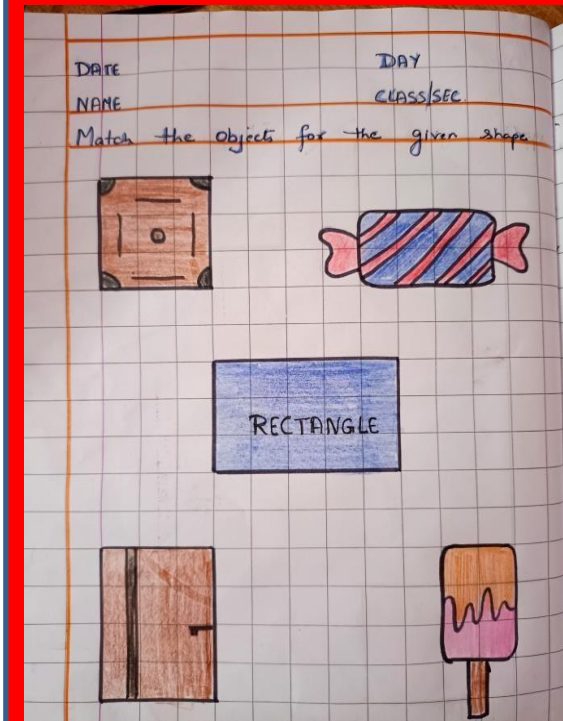 DATE DAY
NAME CLASS/SEC
Match the objects for the given shape
RECTANGLE